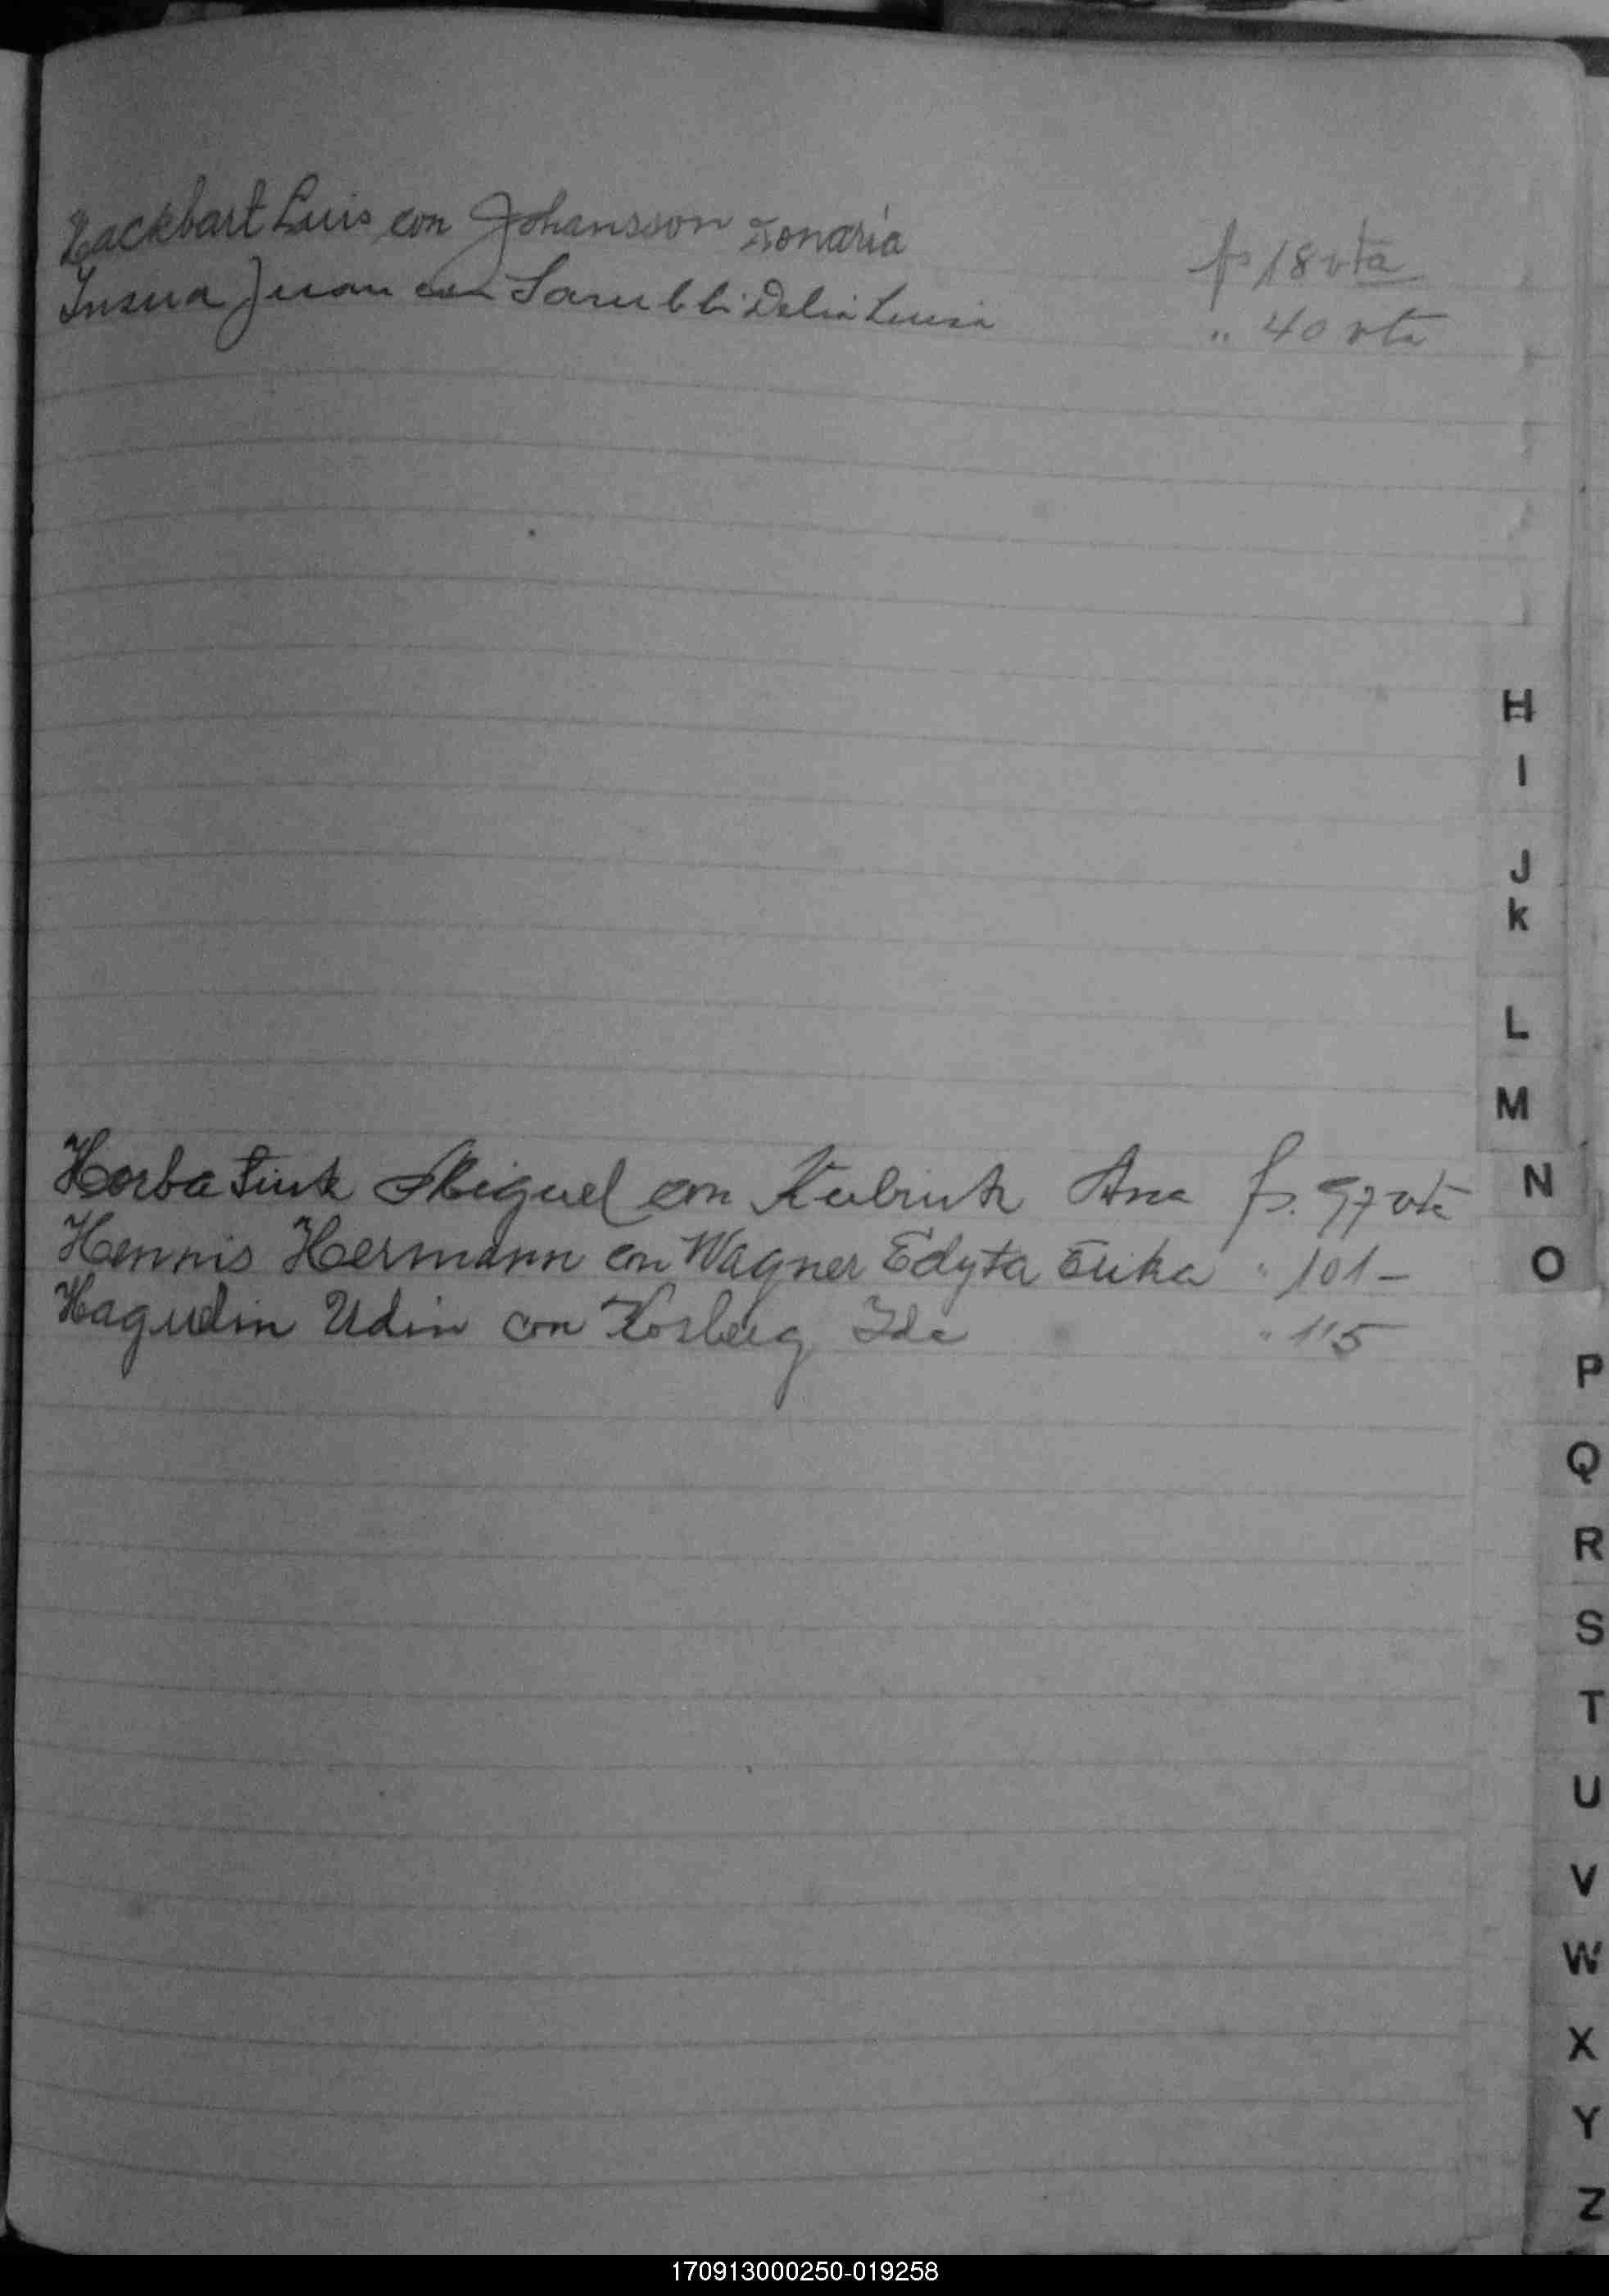 Hackbart Luis con Johansson Zonaria fs 18 vta
Insua Juan con Sarubbi Delia Luisa " 40 vta
H
I
J
K
L
M
Horbatiuk Miguel con Kubruk Ana fs. 97 vta
N
Hennis Hermann con Wagner Edyta Erika " 101 -
O
Hagudin Udin con Korberg Ida " 115
P
Q
R
S
T
U
V
W
X
Y
Z
170913000250-019258